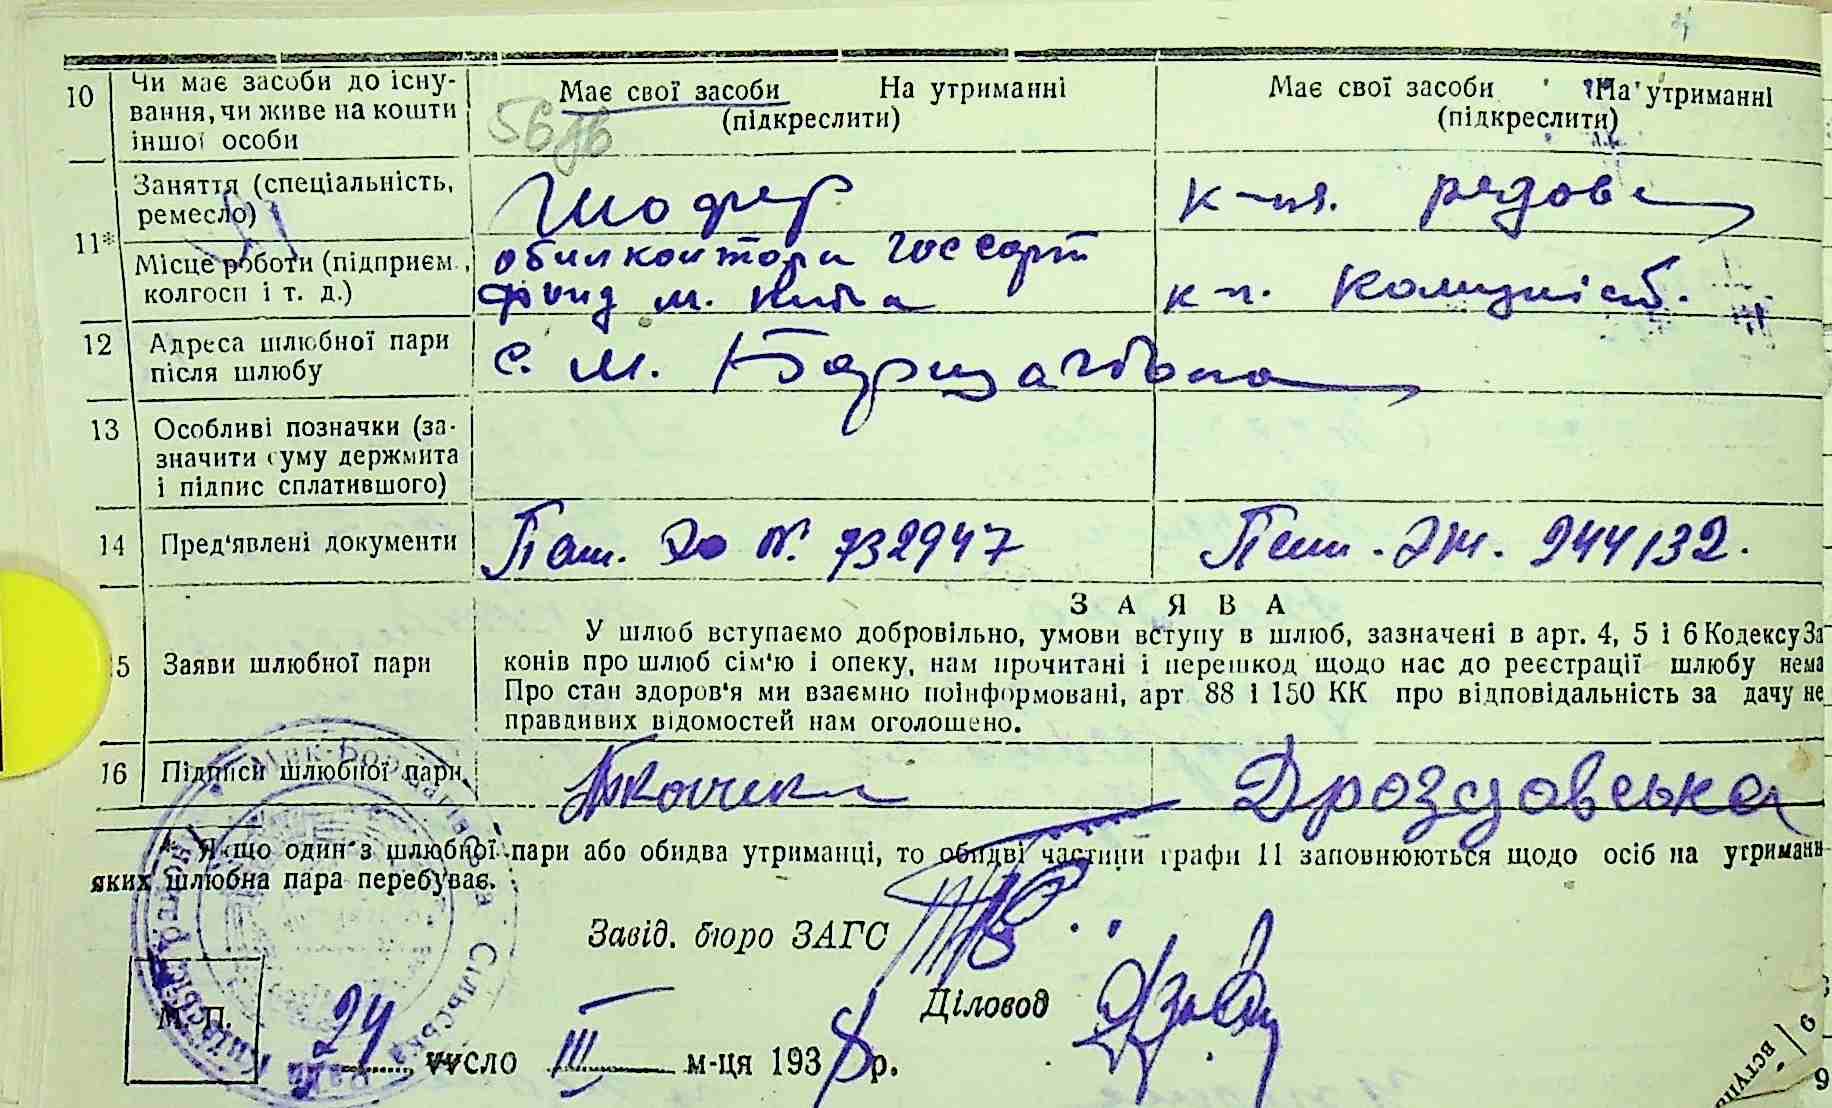 10 Чи має засоби до існу- Має свої засоби На утриманні Має свої засоби На утриманні
вання, чи живе на кошти (підкреслити) (підкреслити)
іншої особи
11* Заняття (спеціальність, Шофер к-ця. рядова
ремесло)
Місце роботи (підприєм., Госсорт
колгосп і т. д.) фонд м. Києва к-п. Комуніст.
12 Адреса шлюбної пари с. М. Борщагівка
після шлюбу
13 Особливі позначки (за-
значити суму держмита
і підпис сплатившого)
14 Пред'явлені документи Паш. № 732947 Паш. ЭЖ. 244132.
З А Я В А
15 Заяви шлюбної пари У шлюб вступаємо добровільно, умови вступу в шлюб, зазначені в арт. 4, 5 і 6 Кодексу За
конів про шлюб сім'ю і опеку, нам прочитані і перешкод щодо нас до реєстрації шлюбу нема
Про стан здоров'я ми взаємно поінформовані, арт 88 і 150 КК про відповідальність за дачу не
правдивих відомостей нам оголошено.
16 Підписи шлюбної пари Дроздовська
* Якщо один з шлюбної пари або обидва утриманці, то обидві частини графи 11 заповнюються щодо осіб на утриманн
яких шлюбна пара перебуває.
Завід. бюро ЗАГС
Діловод
М. П.
24 число III м-ця 1938 р.
вступ
9